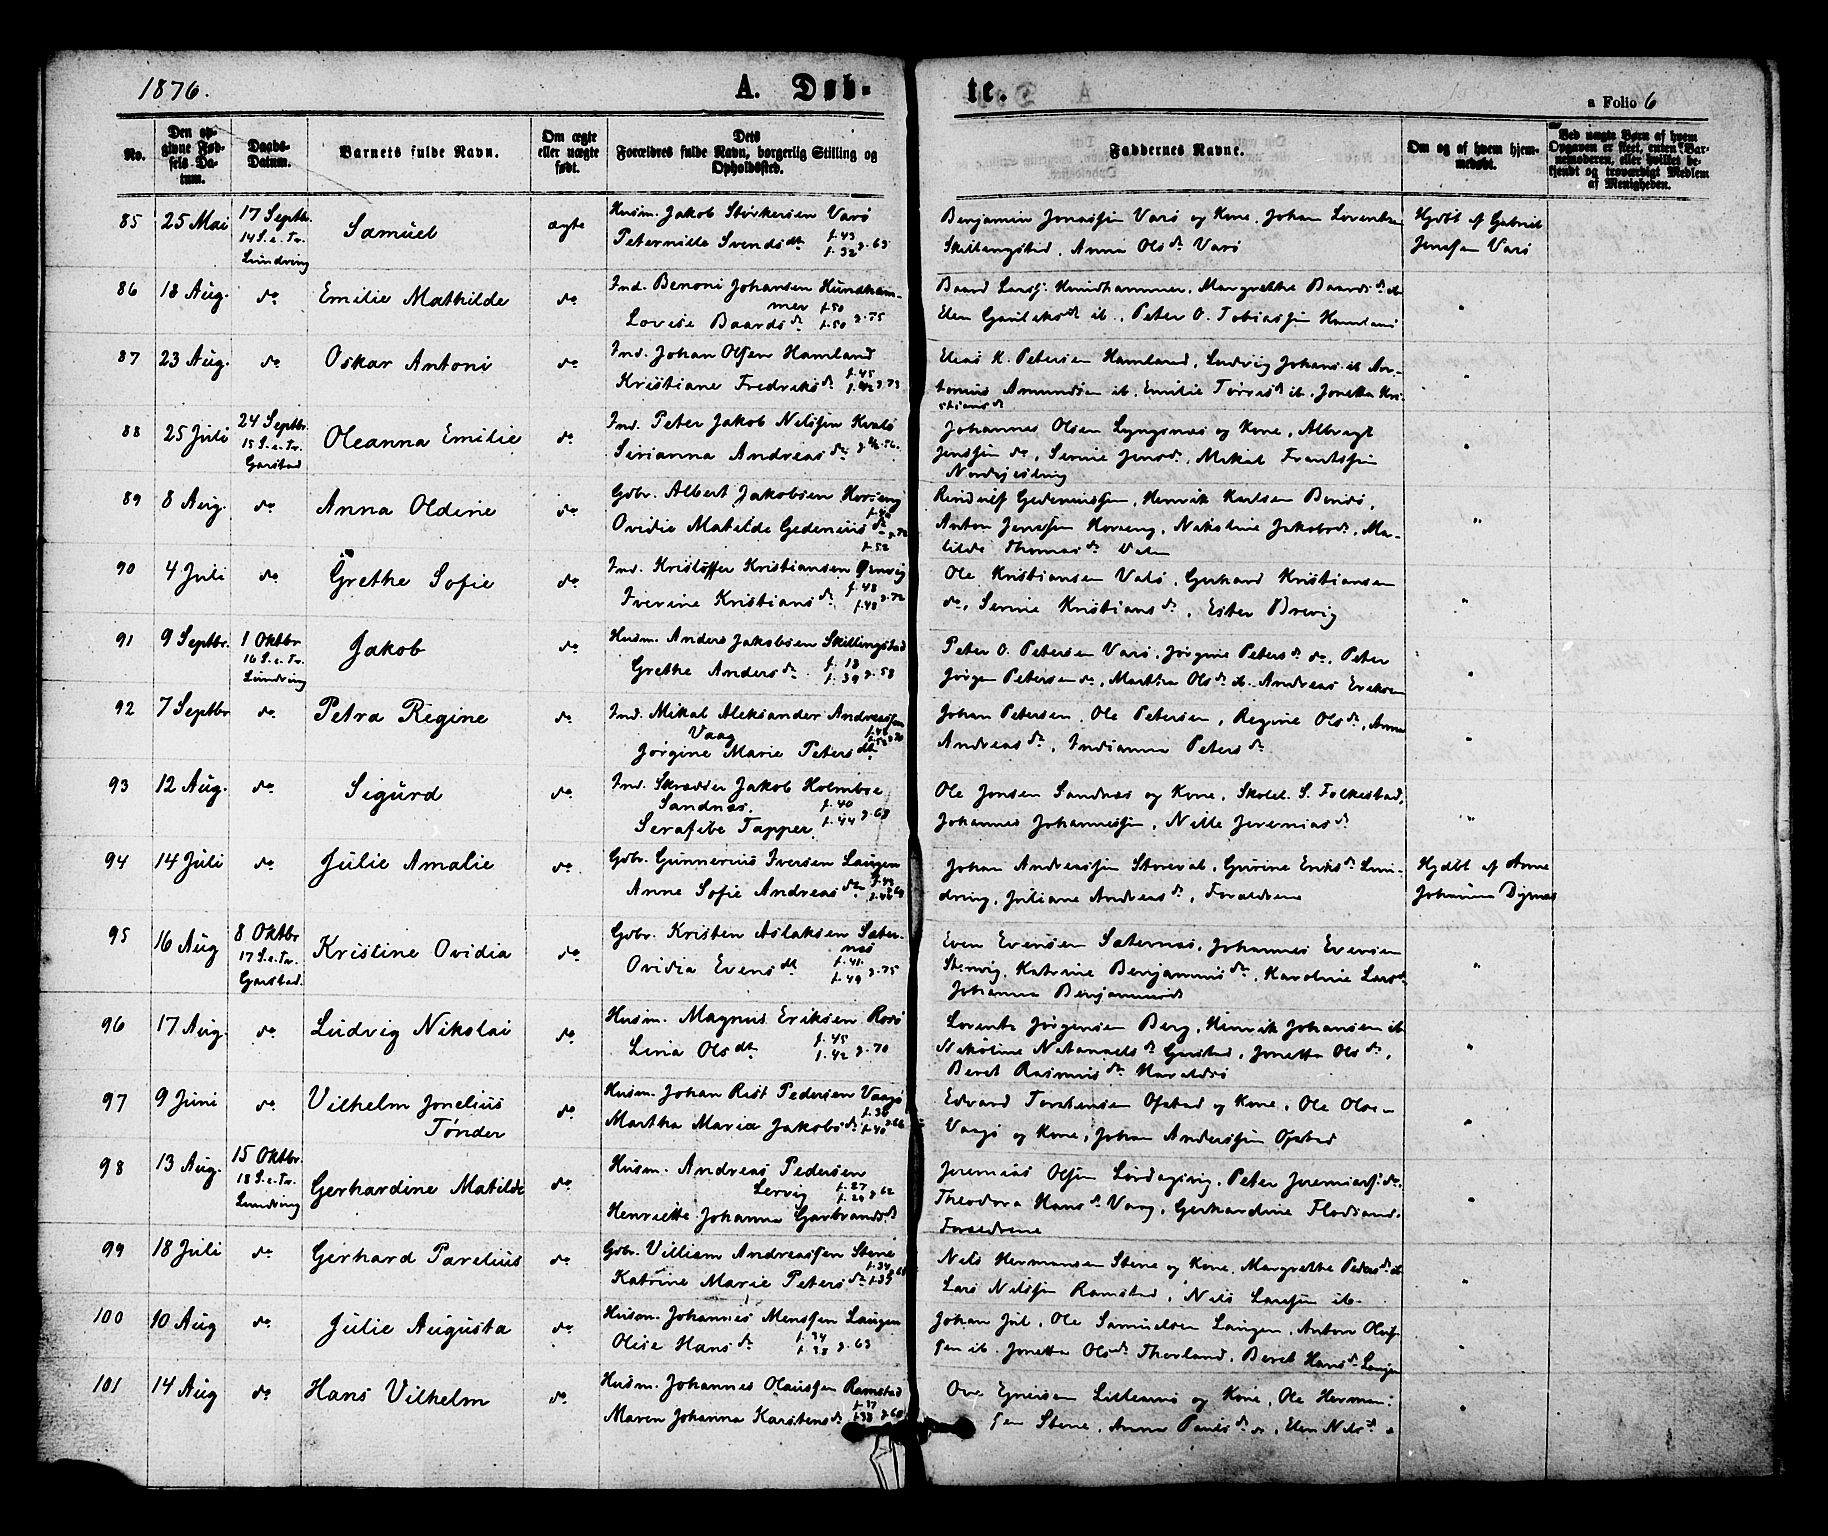 1876.
A. Døb-
te.
a Folio 6
No.
Den op-
givne Fød-
sels Da-
tum.
Daabs-
Datum.
Barnets fulde Navn.
Om ægte
eller uægte
født.
Dets
Forældres fulde Navn, borgerlig Stilling og
Opholdssted.
Faddernes Navne.
Om og af hvem hjem-
medøbt.
Ved uægte Børn af hvem
Opgaven er skeet, enten Bar-
nemoderen, eller hvilket be-
kjendt og troværdigt Medlem
af Menigheden.
85
25 Mai
17 Septbr.
14 S. e. Tr.
Lundring
Samuel
ægte
Husm. Jakob Størkersen Varø
Peternille Svendsdt. f. 43 f. 32 g. 63
Benjamin Jonassen Varø og Kone, Johan Lorentsen
Skillingstad, Anna Olsdr Varø
Hjdbt af Gabriel
Jenssen Varø
86
18 Aug.
do
Emilie Mathilde
do
Ind. Benoni Johansen Hundham-
mer f. 50
Lovise Baardsdr f. 50 g. 75
Baard Larss. Hundhammer, Margrethe Baardsdr ib
Elen ib., Peter O. Tobiassen Hamland
"
87
23 Aug.
do
Oskar Antoni
do
Ind. Johan Olsen Hamland
f. 45
Kristiane Fredriksdr f. 42 g. 73
Elias K. Petersen Hamland, Ludvig Johans. ib An-
tonius Amundsen ib. Emilie Tørrisdr ib. Jonetta Kri-
stiansdr
"
88
25 Juli
24 Septbr.
15 S. e. Tr.
Garstad
Oleanna Emilie
do
Ind. Peter Jakob Nilssen Kvalø
Sirianna Andreasdr
Johannes Olsen Lyngsnæs og Kone, Albregt
Jenssen do, Serine Jensdr, Mikal Frantssen
"
89
8 Aug.
do
Anna Oldine
do
Gdbr. Albert Jakobsen Horseng
f. 46
Ovidie Matilde Gedeniusdr g. 72
f. 52
Rindulf Gedeniussen, Henrik Karlsen Bondø,
Anton Jenssen Horseng, Nikoline Jakobsdr, Ma-
tilde Thomasdr Valen
"
90
4 Juli
do
Grethe Sofie
do
Ind. Kristoffer Kristiansen Ørnvig
f. 48
Iverine Kristiansdr f. 48 g. 72
Ole Kristiansen Valø, Gerhard Kristiansen
do, Serine Kristiansdr, Ester Brevig
"
91
9 Septbr.
1 Oktbr
16 S. e. Tr.
Lundring
Jakob
do
Husm. Anders Jakobsen Skillingstad
f. 18
Grethe Andersdr f. 39 g. 58
Peter O. Petersen Varø, Jørgine Petersdr do, Peter
Jørgen Petersen do, Martha Olsdr ib. Andreas Eriksen
"
92
7 Septbr
do
Petra Regine
do
Ind. Mikal Aleksander Andreassen
Vaag f. 48
Jørgine Marie Petersdtr.
Johan Petersen, Ole Petersen, Regine Olsdr, Anna
Andreasdr, Indianna Petersdr
"
93
12 Aug.
do
Sigurd
do
Ind. Skrædder Jakob Holmboe
Sandnæs. f. 40
Serafibe Tapper f. 44 g. 68
Ole Jonsen Sandnæs og Kone, Skolel. S. Folkestad,
Johannes Johannessen, Nille Jeremiasdr
"
94
14 Juli
do
Julie Amalie
do
Gdbr. Gunnerius Iversen Laugen
f. 43
Anne Sofie Andreasdr f. 46
Johan Andreassen Storeval, Gurine Eriksdr Lun-
dring, Juliane Andreasdr, Forældrene
Hjdbt af Anne
Johanna Dignæs
95
16 Aug
8 Oktbr
17 S. e. Tr.
Garstad.
Kristine Ovidia
do
Gdbr. Kristen Aslaksen Sæter-
næs
f. 41.
Ovidia Evensdt f. 49 g. 75
Even Evensen Sæternæs, Johannes Evensen
Katrine Benjaminsdr, Karoline Larsdr
Johanna Benjaminsdr
"
96
17 Aug.
do
Ludvig Nikolai
do
Husm. Magnus Eriksen Rosø
f. 45
Lina Olsdt. f. 42 g. 70
Lorents Jørgensen Berg, Henrik Johansen ib
Nikoline Natanaelsdr Garstad, Jonetta Olsdr,
Beret Rasmusdr Haraldsø
"
97
9 Juni
do
Vilhelm Jonelius
Tønder
do
Husm. Johan Rist Pedersen Vaagø
f. 36
Martha Maria Jakobsdr f. 40 g. 66
Edvard Torstensen Opstad og Kone, Ole Olsen
Vaagø og Kone, Johan Anderssen Opstad
"
98
13 Aug.
15 Oktbr.
18 S. e. Tr.
Lundring
Gerhardine Matilde
do
Husm. Andreas Pedersen
Lervig f. 27
f. 29 g. 62
Henriette Johanna Garbrandsdt
Jeremias Olsen Lørdagsvig, Peter Jeremiass. do,
Theodora Hansdr Vaag, Gerhardine Flodsand.
Forældrene
"
99
18 Juli
do
Gerhard Parelius
do
Gdbr. Villiam Andreassen Stene
f. 34
Katrine Marie Petersdr f. 35
Nils Hermansen Stene og Kone, Margrethe Pedersdr ib
Lars Nilssen Ramstad, Nils Larssen ib.
"
100
10 Aug
do
Julie Augusta
do
Husm. Johannes Menssen Laugen
f. 34
Olise Hansdr f. 38 g. 63
Johan Jul, Ole Samuelsen Laugen, Anton Oluf-
sen ib. Jonetta Olsdr Thorland, Beret Hansdr Laugen
"
101
14 Aug
do
Hans Vilhelm
do
Husm. Johannes Olaussen Ramstad
f. 37
Maren Johanna Karstensdr f. 38 g. 60
Ove Ejnersen Lillenæs og Kone, Ole Herman-
sen Stene, Anna Paulsdr do, Elen Nilsdr do
"